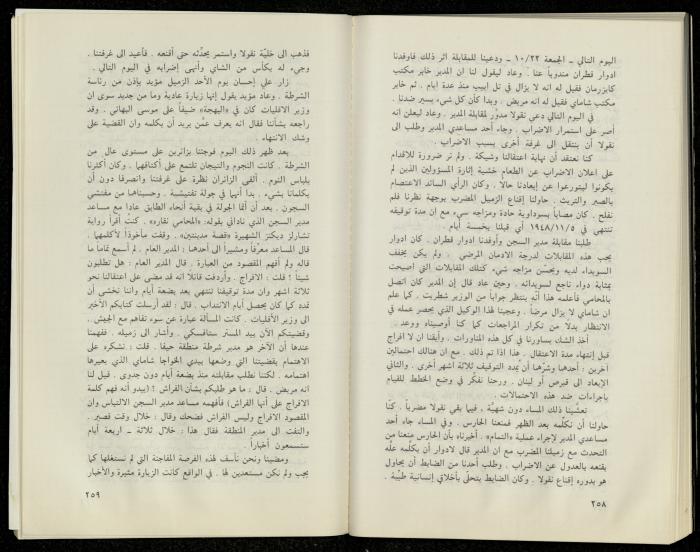 اليوم التالي ـ الجمعة ١٠/٢٢ ـ ودعينا للمقابلة اثر ذلك فأوفدنا
ادوار قطران مندوباً عنا . وعاد ليقول لنا ان المدير خابر مكتب
كابرزمان فقيل له انه لا يزال في تل ابيب منذ عدة ايام . ثم خابر
مكتب شاماي فقيل له انه مريض . وبدا كأن كل شيء يسير ضدنا .
في اليوم التالي دعي نقولا مدوّر لمقابلة المدير . وعاد ليعلن انه
أصر على استمرار الاضراب . وجاء أحد مساعدي المدير وطلب الى
نقولا أن ينتقل الى غرفة أخرى بسبب الاضراب .
كنا نعتقد أن نهاية اعتقالنا وشيكة . ولم تر ضرورة للاقدام
على اعلان الاضراب عن الطعام خشية إثارة المسؤولين الذين لم
يكونوا ليتورعوا عن إبعادنا حالا . وكان الرأي السائد الاعتصام
بالصبر والتريث . حاولنا إقناع الزميل المضرب بوجهة نظرنا فلم
نفلح . كان مصاباً بسوداوية حادة ومزاجه سيء مع إن مدة توقيفه
تنتهي في ١٩٤٨/١١/٥ أي قبلنا بخمسة أيام .
طلبنا مقابلة مدير السجن وأوفدنا ادوار قطران . كان ادوار
يحب هذه المقابلات لدرجة الادمان المرضي . ولم يكن يخفف
السويداء لديه ويحسّن مزاجه شيء كتلك المقابلات التي اصبحت
بمثابة دواء ناجع لسويدائه . وحين عاد قال إن المدير كان اتصل
بالمحامي فأعلمه هذا أنه ينتظر جواباً من الوزير شطريت . كما علم
ان شاماي لا يزال مرضا . وعجبنا لهذا الوكيل الذي يحصر عمله في
الانتظار بدلا من تكرار المراجعات كما كنا أوصيناه ووعد .
أخذ الشك يساورنا في كل هذه المناورات . وأيقنا ان لا افراج
قبل إنتهاء مدة الاعتقال . هذا اذا تم ذلك . مع ان هنالك احتمالين
آخرين : أحدهما وشرّهما أن تُمدد التوقيف ثلاثة أشهر أخرى . والثاني
الإبعاد الى قبرص أو لبنان . ورحنا نفكّر في وضع الخطط للقيام
بإجراءات ضد هذه الاحتمالات .
تعشّينا ذلك المساء دون شهيّة . فيما بقي نقولا مضرباً . كنا
حاولنا أن نكلّمه بعد الظهر فمنعنا الحارس . وفي المساء جاء أحد
مساعدي المدير لإجراء عملية «التمام» . أخبرناه بأن الحارس منعنا من
التحدث مع زميلنا المضرب مع ان المدير قال لادوار أن يكلمه علّه
يقنعه بالعدول عن الاضراب . وطلب أحدنا من الضابط أن يحاول
هو بدوره إقناع نقولا . وكان الضابط يتحلّى بأخلاق إنسانية طيّبة .
٢٥٨
فذهب الى خليّة نقولا واستمر يحدّثه حتى أقنعه . فأعيد الى غرفتنا .
وجيء له بكأس من الشاي وأنهى إضرابه في اليوم التالي .
زار علي إحسان يوم الأحد الزميل مؤيد بإذن من رئاسة
الشرطة . وعاد مؤيد يقول إنها زيارة عادية وما من جديد سوى ان
وزير الاقليات كان في «البهجة» ضيفاً على موسى البهائي . وقد
راجعه بشأننا فقال انه يعرف عمّن يريد أن يكلمه وان القضية على
وشك الانتهاء .
بعد ظهر ذلك اليوم فوجئنا بزائرين على مستوى عال من
الشرطة . كانت النجوم والتيجان تلتمع على أكتافهما . وكان أكثرنا
بلباس النوم . ألقى الزائران نظرة على غرفتنا وانصرفا دون أن
يكلمانا بشيء . بدا أنهما في جولة تفتيشية . وحسبناهما من مفتشي
السجون . بعد أن أتما الجولة في بقية أنحاء الطابق عادا مع مساعد
مدير السجن الذي ناداني بقوله: «المحامي نقاره» . كنتُ أقرأ رواية
تشارلز ديكنز الشهيرة «قصة مدينتين» . وقفت مأخوذا لأكلمهما .
قال المساعد معرّفاً ومشيراً الى احدهما : المدير العام . لم أسمع تماما ما
قاله ولم أفهم المقصود من العبارة . قال المدير العام : هل تطلبون
شيئاً ؟ قلت : الافراج . وأردفت قائلاً انه قد مضى على اعتقالنا نحو
ثلاثة اشهر وان مدة توقيفنا تنتهي بعد بضعة أيام واننا نخشى أن
تمدد كما كان يحصل أيام الانتداب . قال : لقد أرسلت كتابكم الأخير
الى وزير الأقليات . كانت المسألة عبارة عن سوء تفاهم مع الجيش .
وقضيتكم الآن بيد المستر ستافسكي . وأشار الى زميله . ففهمنا
عندها أن الآخر هو مدير شرطة منطقة حيفا . قلت : نشكره على
الاهتمام بقضيتنا التي وضعها بيدي الخواجا شاماي الذي يعيرها
اهتمامه . لكننا نطلب مقابلته منذ بضعة أيام دون جدوى . قيل لنا
انه مريض . قال : ما هو طلبكم بشأن الفراش ؟ (يبدو أنه فهم كلمة
الافراج على أنها الفراش) فأفهمه مساعد مدير السجن الالتباس وان
المقصود الافراج وليس الفراش فضحك وقال : خلال وقت قصير .
والتفت الى مدير المنطقة فقال هذا : خلال ثلاثة ـ اربعة أيام
ستسمعون أخباراً .
ومضينا ونحن نأسف لهذه الفرصة المفاجئة التي لم نستغلها كما
يجب ولم نكن مستعدين لها . في الواقع كانت الزيارة مثيرة والأخبار
٢٥٩